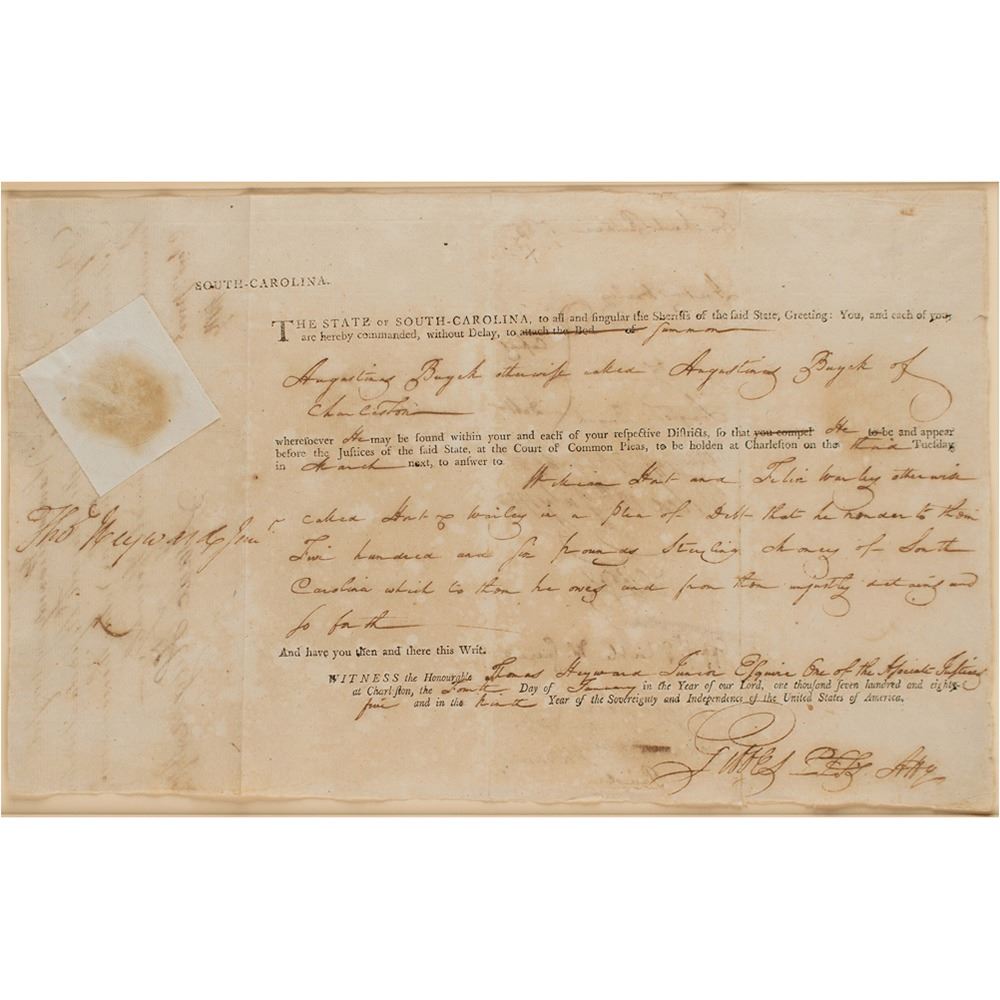 SOUTH-CAROLINA.
THE STATE OF SOUTH-CAROLINA, to all and singular the Sheriffs of the said State, Greeting: You, and each of you,
are hereby commanded, without Delay, to attach the Bod of Summon
Augustinus Buyck otherwise called Augustinus Buyck of
Charleston
wheresoever He may be found within your and each of your respective Districts, so that you compel He to be and appear
before the Justices of the said State, at the Court of Common Pleas, to be holden at Charleston on the third Tuesday
in March next, to answer to
William Hort and Felix Warley otherwise
called Hort & Warley in a Plea of Debt that he render to them
Five hundred and six pounds Sterling Money of South
Carolina which to them he owes and from them unjustly detains and
so forth
And have you then and there this Writ.
WITNESS the Honourable Thomas Heyward Junior Esquire One of the Associate Justices
at Charleston, the Fourth Day of January in the Year of our Lord, one thousand seven hundred and eighty-
five and in the Ninth Year of the Sovereignty and Independence of the United States of America.
Thos Heyward Junr
Gibbes Atty